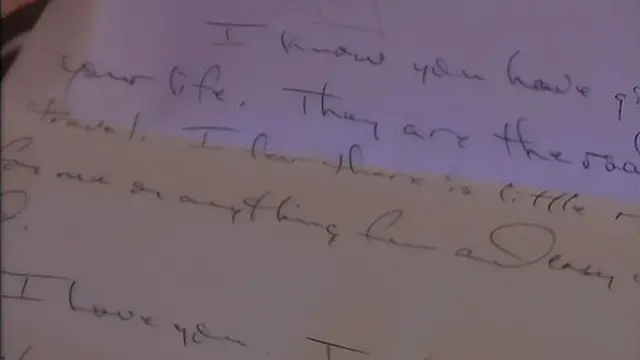 I know you have
your life. They are the
travel. I fear there is little
for me or anything fun and easy
I love you. I